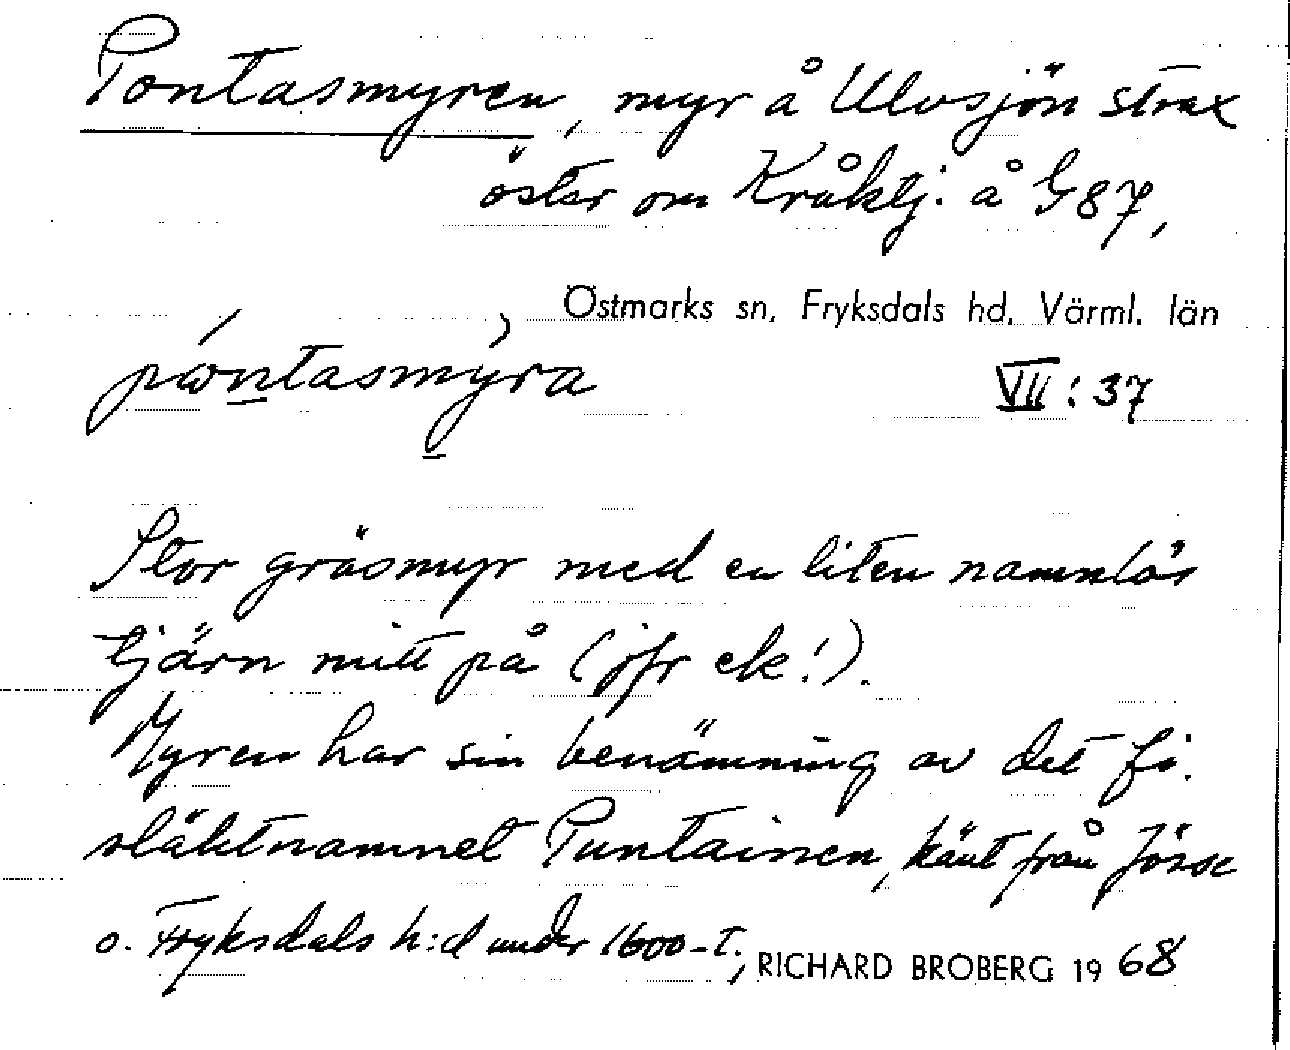 Pontasmyren, myr å Ulvsjön strax
öster om Kråktj. å G 87,
Östmarks sn, Fryksdals hd, Värml. län
VII: 37
Stor gräsmyr med en liten namnlös
tjärn mitt på (jfr ek!).
Myren har sin benämning av det fi.
släktnamnet Puntainen, känt från Jösse
o. Fryksdals h:d under 1600-t.,
RICHARD BROBERG 1968